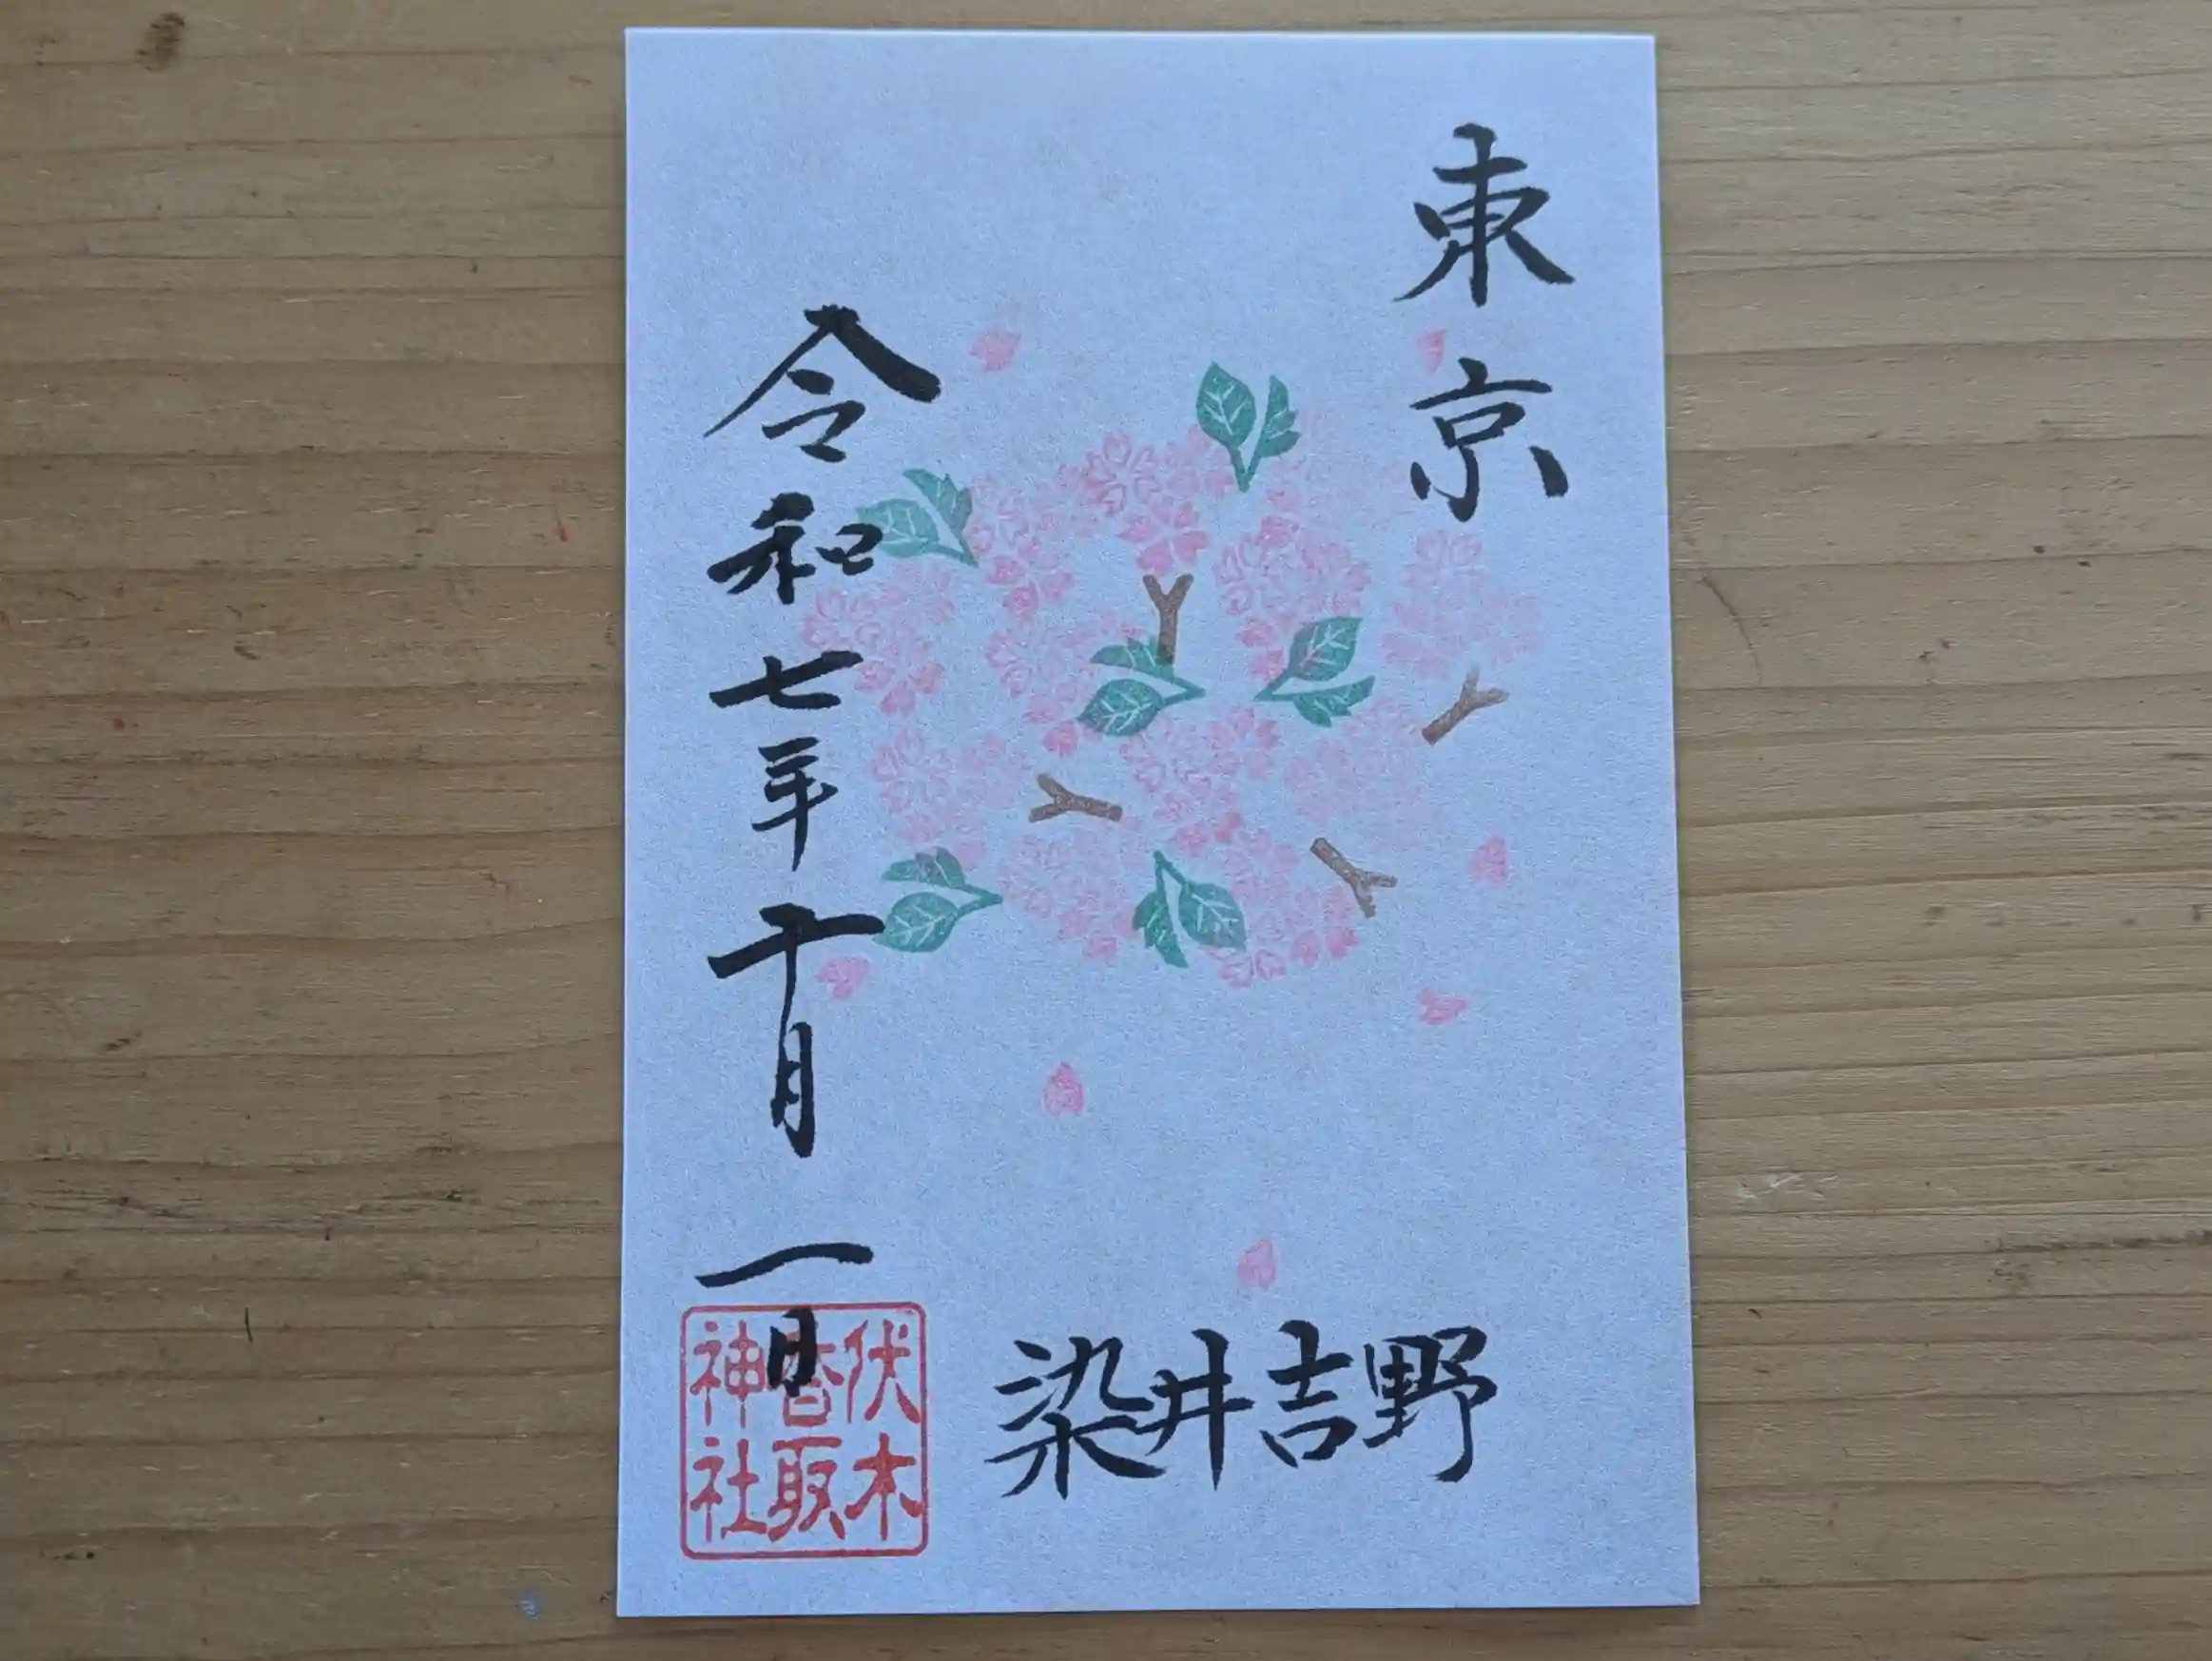 東京
染井吉野
令和七年十月一日
伏木
香取
神社